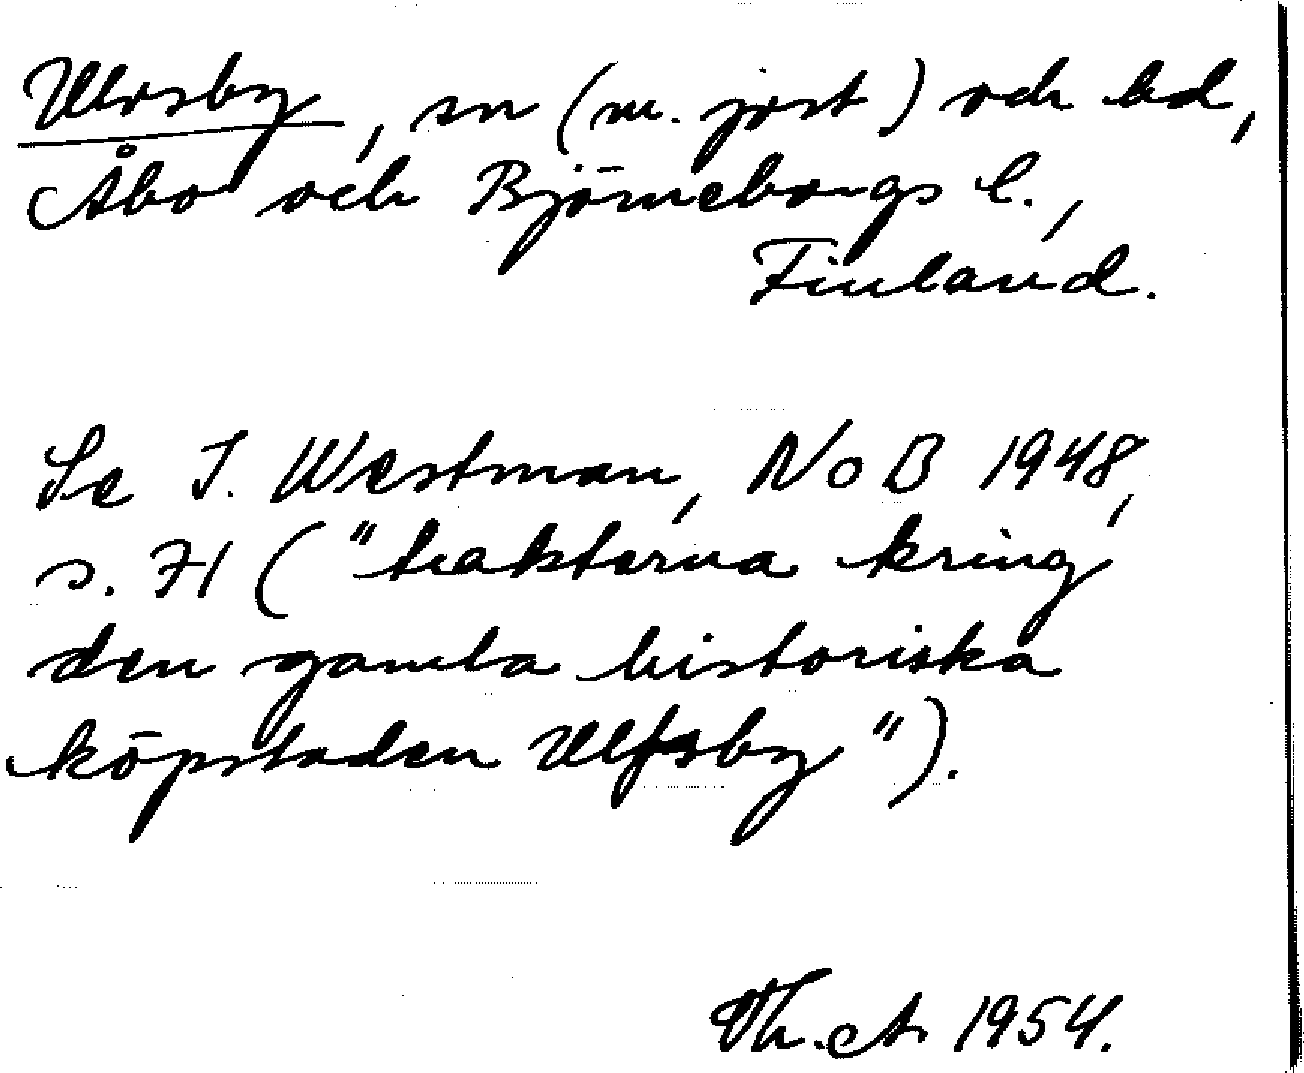 Ulvsby, sn (m. jvst) och hd,
Åbo och Björneborgs l.,
Finland.
Se I. Westman, NoB 1948,
s. 71 ("trakterna kring
den gamla historiska
köpstaden Ulfsby").
Th. A 1954.